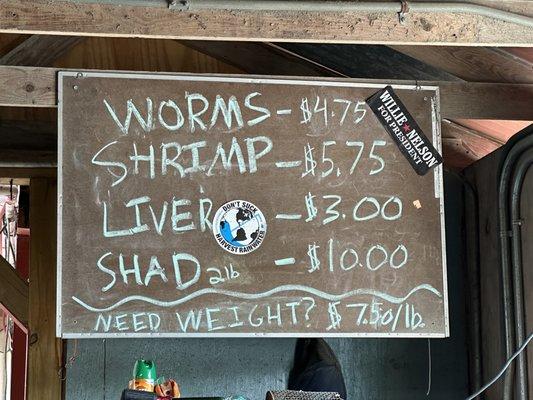 WORMS - $4.75
WILLIE NELSON
FOR PRESIDENT
SHRIMP - $5.75
LIVER - $3.00
DON'T SUCK
HARVEST RAINWATER
SHAD 2lb - $10.00
NEED WEIGHT? $7.50/lb